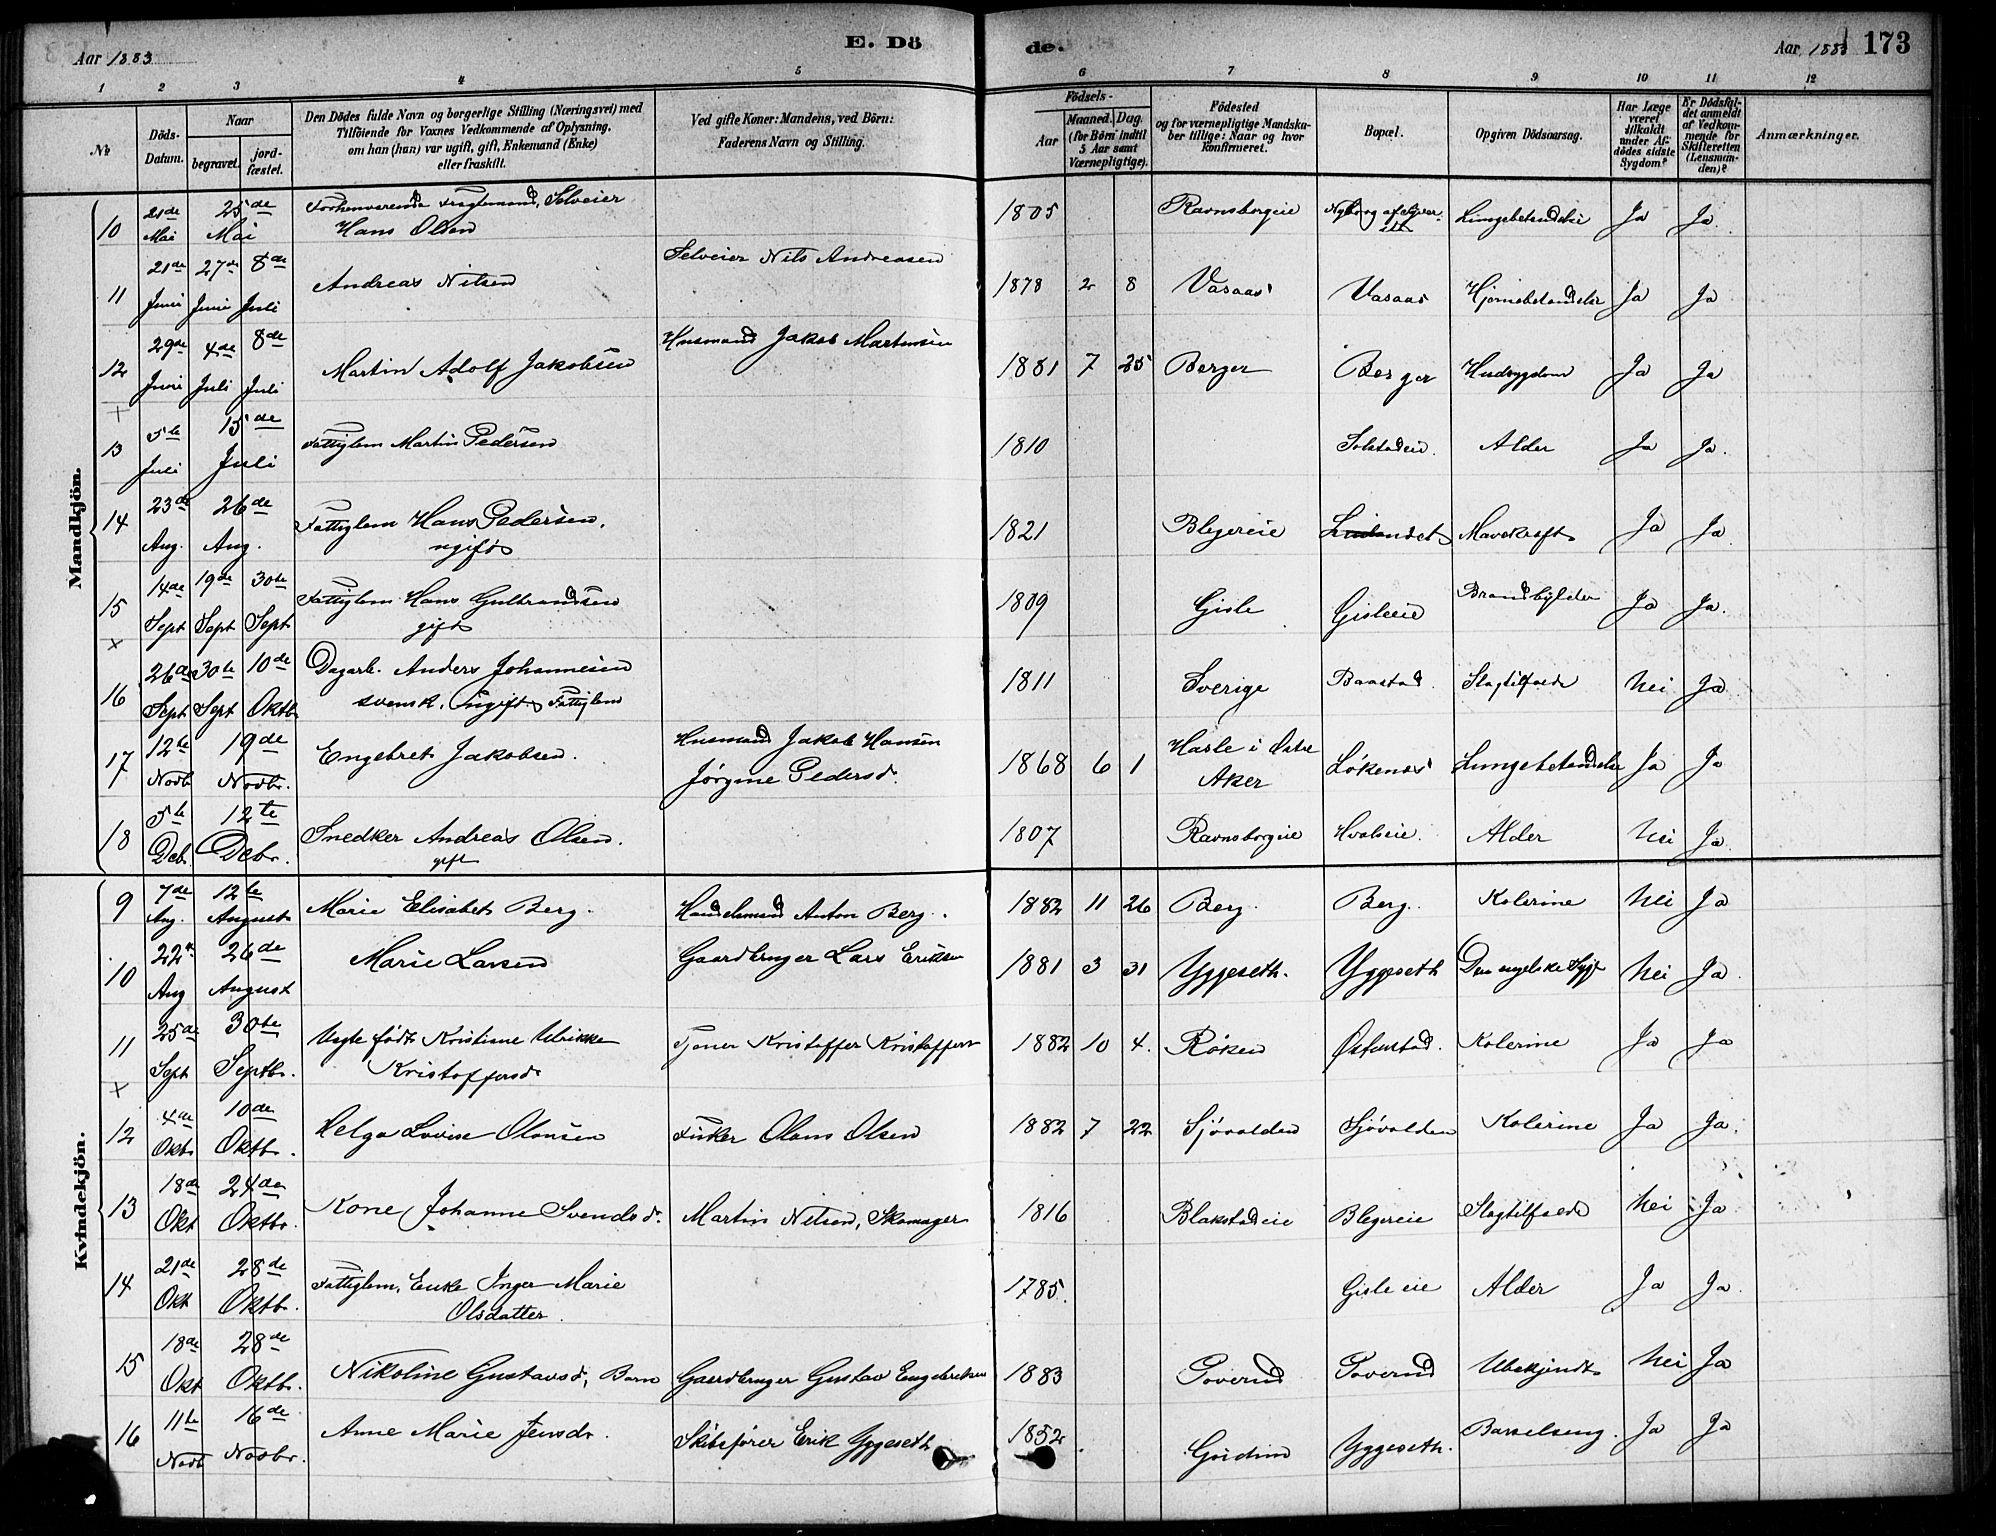 Aar 1883
E. Dö
de.
Aar 1883
173
1 2 3 4 5 6 7 8 9 10 11 12
No
Döds-Datum.
Naar
begravet.
jord-fæstet.
Den Dödes fulde Navn og borgerlige Stilling (Næringsvei) med
Tilföiende for Voxnes Vedkommende af Oplysning,
om han (hun) var ugift, gift, Enkemand (Enke)
eller fraskilt.
Ved gifte Koner: Mandens, ved Börn:
Faderens Navn og Stilling.
Födsels-
Aar
Maaned. Dag.
(for Börn indtil
5 Aar samt
Værnepligtige).
Födested
og for værnepligtige Mandska-
ber tillige: Naar og hvor
Konfirmeret.
Bopæl.
Opgiven Dödsaarsag.
Har Læge
været
tilkaldt
under Af-
dödes sidste
Sygdom?
Er Dödsfal-
det anmeldt
af Vedkom-
mende for
Skifteretten
(Lensman-
den)?
Anmærkninger.
Mandkjön.
10 21de Mai 25de Mai Forhenværende Selveier Hans Olsen 1805 Ravnsborgeie Nyborg af Lungebetændelse Ja Ja
11 21de Juni 27de Juni 8de Juli Andreas Nilsen Selveier Nils Andreasen 1878 2 8 Vasaas Vasaas Hjernebetændelse Ja Ja
12 29de Juni 4de Juli 8de Juli Martin Adolf Jakobsen Husmand Jakob Martinsen 1881 7 25 Berger Berger Hudsygdom Ja Ja
13 5te Juli 15de Juli Fattiglem Martin Pedersen 1810 Solstadeie. Alder Ja Ja.
14 23de Aug. 26de Aug. Fattiglem Hans Pedersen, ugift 1821 Blegereie Mavekræft Ja Ja
15 14de Sept 19de Sept 30te Sept Fattiglem Hans Gulbrandsen gift 1809 Gisle Gisleeie Brandbylder Ja Ja.
16 26de Sept 30te Sept 10de Oktb Dagarb. Anders Johannesen svensk. ugift Fattiglem 1811 Sverige Baastad Slagtilfælde Nei Ja
17 12te Novb 19de Novbr. Engebret Jakobsen. Husmand Jakob Hansen Jørgine Pedersd. 1868 6 1 Hasle i Østre Aker Løkenes Lungebetændelse Ja Ja
18 5te Deb. 12te Debr. Snedker Andreas Olsen. gift 1807 Ravnsborgeie Hvalseie. Alder Nei Ja
Kvindekjön.
9 7de Aug. 12te August Marie Elisabet Berg. Handelsmand Anton Berg. 1882 11 26 Berg. Berg. Kolerine Nei Ja
10 22de Aug 26de August Marie Larsen Gaardbruger Lars Eriksen 1881 3 31 Yggeseth. Yggeseth Den engelske Syge Nei Ja
11 25de Sept 30te Septbr. Uægte født Kristine Ulrikke Kristoffersd. Tjener Kristoffer Kristoffers 1882 10 4. Røken Østenstad. Kolerine Ja Ja
12 4de Oktb 10de Oktb. Helga Lovise Olausen Fisker Olaus Olsen 1882 7 22 Sjøvolden Sjøvolden Kolerine Ja Ja.
13 18de Okt 24de Oktbr. Kone Johanne Svendsd. Martin Nilsen, Skomager 1816 Blakstadeie Blegereie Slagtilfælde Nei Ja
14 21de Okt 28de Oktbr. Fattiglem, Enke Inger Marie Olsdatter. 1785. Gisleeie Alder Ja Ja.
15 18de Okt 28de Oktbr. Nikoline Gustavsd, Barn Gaardbruger Gustav Engebretsen 1883 Toverud Toverud Ubekjendt Nei Ja
16 11te Novb 16de Novbr. Anne Marie Jensdr. Skibsfører Erik Yggeseth 1852 Yggeseth. Barselseng. Ja Ja